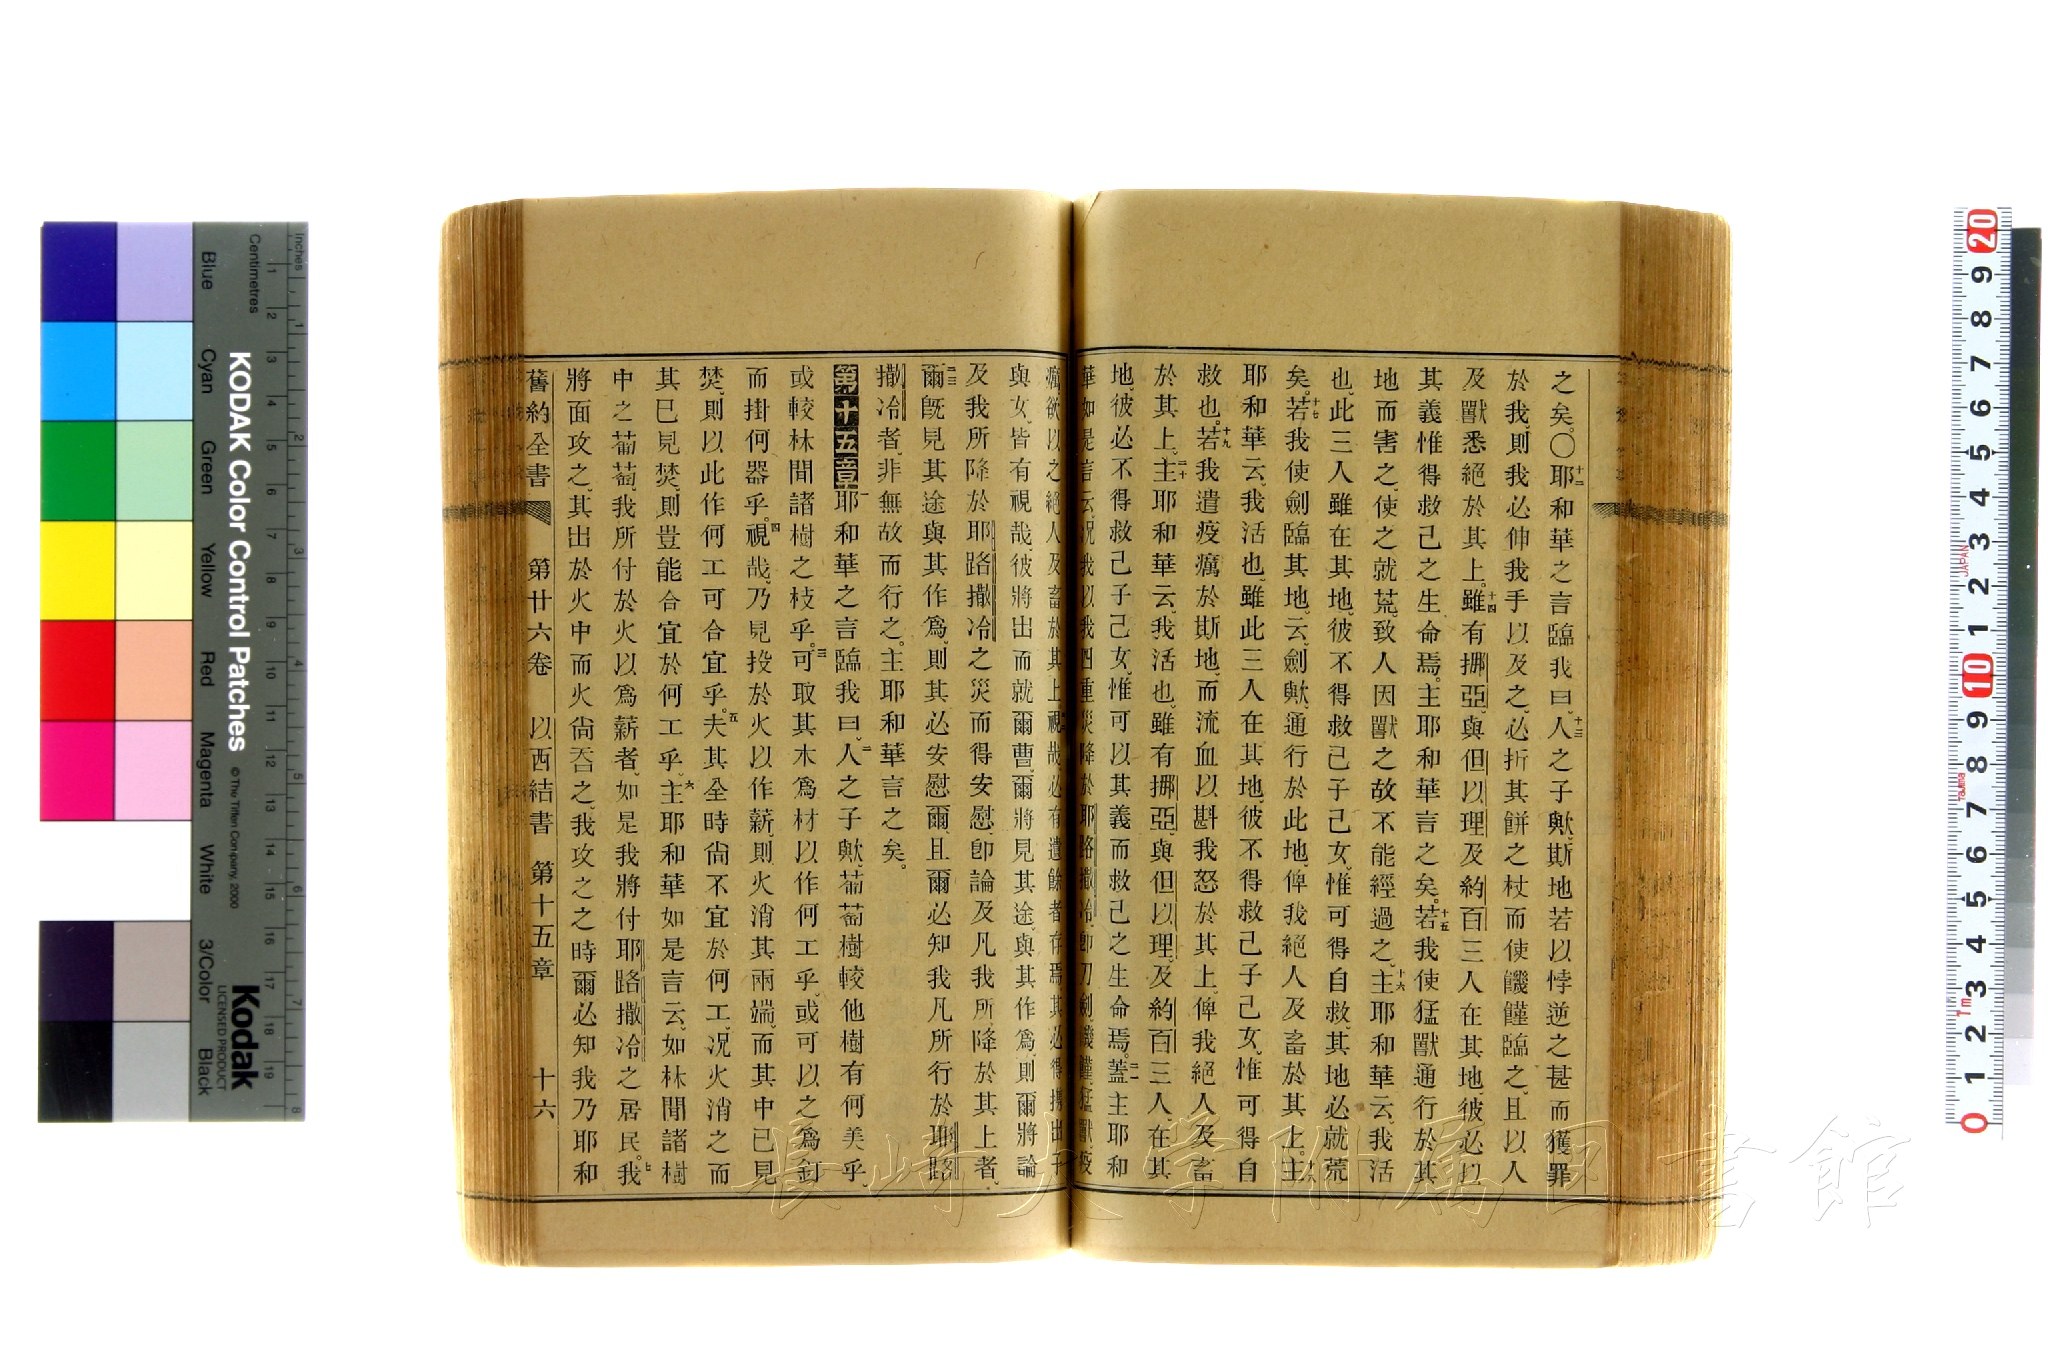 之矣。〇十二耶和華之言臨我曰、十三人之子歟、斯地若以悖逆之甚而獲罪
於我、則我必伸我手以及之、必折其餅之杖而使饑饉臨之、且以人
及獸悉絕於其上。十四雖有挪亞、與但以理及約百三人在其地、彼必以
其義惟得救己之生命焉。主耶和華言之矣。十五若我使猛獸通行於其
地而害之、使之就荒、致人因獸之故不能經過之、十六主耶和華云、我活
也、此三人雖在其地、彼不得救己子己女、惟可得自救、其地必就荒
矣。十七若我使劍臨其地、云、劍歟、通行於此地、俾我絕人及畜於其上。十八主
耶和華云、我活也、雖此三人在其地、彼不得救己子己女、惟可得自
救也。十九若我遣疫癘於斯地、而流血以斟我怒於其上、俾我絕人及畜
於其上、二十主耶和華云、我活也、雖有挪亞、與但以理、及約百三人在其
地、彼必不得救己子己女、惟可以其義而救己之生命焉。二一蓋主耶和
華如是言云、况我以我四重災降於耶路撒冷、卽刀劍、饑饉、猛獸、疫
癘、欲以之絕人及畜於其上、視哉、必有遺餘者存焉、其必得攜出子
與女、皆有視哉、彼將出而就爾曹、爾將見其途、與其作爲、則爾將論
及我所降於耶路撒冷之災而得安慰、卽論及凡我所降於其上者、
二三爾旣見其途與其作爲、則其必安慰爾、且爾必知我凡所行於耶路
撒冷者、非無故而行之。主耶和華言之矣。
第十五章一耶和華之言臨我曰、二人之子歟、葡萄樹較他樹有何美乎、
或較林間諸樹之枝乎。三可取其木爲材以作何工乎、或可以之爲釘
而掛何器乎。四視哉、乃見投於火以作薪、則火消其兩端、而其中已見
焚、則以此作何工可合宜乎。五夫其全時尙不宜於何工、况火消之而
其已見焚、則豈能合宜於何工乎。六主耶和華如是言云、如林間諸樹
中之葡萄、我所付於火以爲薪者、如是我將付耶路撒冷之居民。七我
將面攻之、其出於火中而火尙吞之、我攻之之時、爾必知我乃耶和
舊約全書 第廿六卷 以西結書 第十五章 十六
KODAK Color Control Patches
© The Tiffen Company, 2000
Kodak
LICENSED PRODUCT
Inches
Centimetres
Blue Cyan Green Yellow Red Magenta White 3/Color Black
長崎大学附属図書館